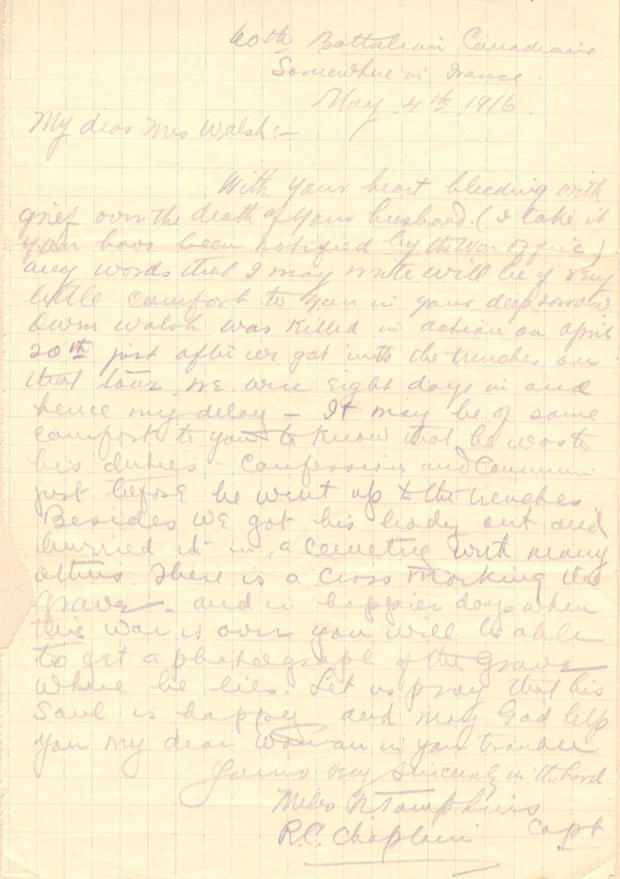 60th Battalion Canadians
Somewhere in France.
May 4th, 1916.
My dear Mrs Walsh:-
With your heart bleeding with
grief over the death of your husband. (I take it
you have been notified by the War office)
any words that I may write will be of very
little comfort to you in your deep sorrow
Owen Walsh was killed in action on April
20th just after we got into the trenches on
that tour. We were eight days in and
hence my delay - It may be of some
comfort to you to know that he was to
his duties - Confession and Communion
just before he went up to the trenches
Besides we got his body out and
burried it in a cemetry with many
others. There is a cross marking the
grave - and in happier days when
this war is over you will be able
to get a photograph of the grave
where he lies. Let us pray that his
Soul is happy and may God help
you my dear woman in your trouble
Yours very sincerely in the Lord
Miles N Tompkins
Capt
R.C. Chaplain